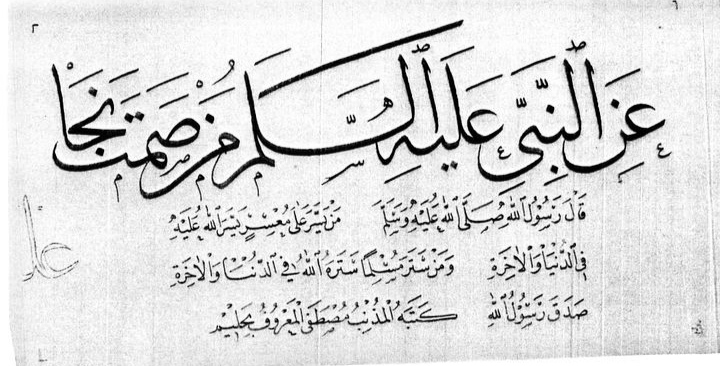 عن النبي عليه السلم من صمت نجا
قال رسول الله صلى الله عليه وسلم من يسر على معسر يسر الله عليه
في الدنيا والاخرة ومن ستر مسلما ستره الله في الدنيا والاخرة
صدق رسول الله كتبه المذنب مصطفى المعروف بحليم